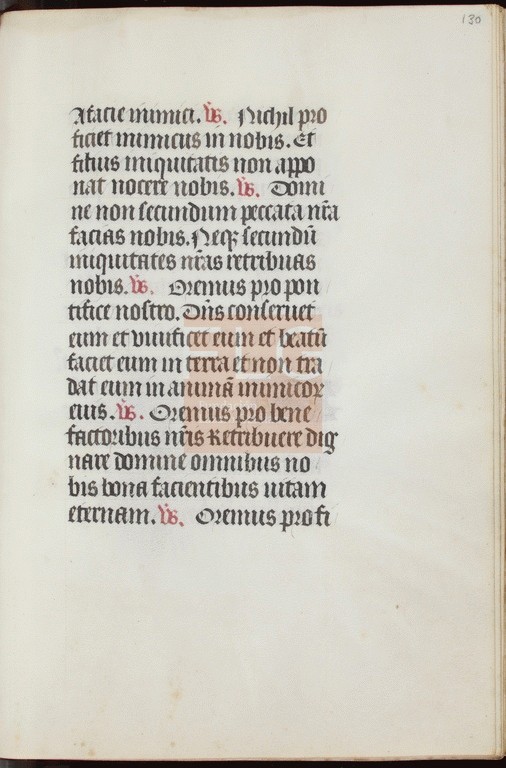 130
A facie inimici. Vs. Nichil pro
ficiet inimicus in nobis. Et
filius iniquitatis non appo
nat nocere nobis. Vs. Domi
ne non secundum peccata nr̄a
facias nobis. Neqꝫ secundū
iniquitates nr̄as retribuas
nobis. Vs. Oremus pro pon
tifice nostro. Dn̄s conseruet
eum et viuificet eum et beatū
faciet eum in terra et non tra
dat eum in animā inimicoꝝ
eius. Vs. Oremus pro bene
factoribus nr̄is Retribuere dig
nare domine omnibus no
bis bona facientibus uitam
eternam. Vs. Oremus pro fi